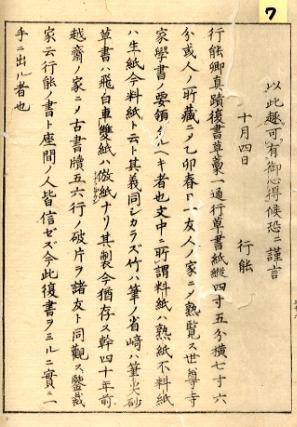 7
以此趣可有御心得候恐々謹言
十月四日
行能
行能卿真蹟復書草藁一通行草書紙縦四寸五分横七寸六
分或人ノ所藏ニメ乙卯春十一友人ノ家ニメ熟覧ス世尊寺
家學書ノ要領ナルヘキ者也文中ニ所謂料紙ハ熟紙不料紙
ハ生紙今料紙ト云ト其義同シカラス竹ハ筆ノ省﨑ハ筆尖砂
草書ハ飛白車雙紙ハ倣紙ナリ其製今猶存ス幹四十年前
越齋ノ家ニメ古書牘五六行ノ破片ヲ諸友ト同觀ス鑒裁
家云行能ノ書ト座間ノ人皆信セズ今此復書ヲミルニ實ニ一
手ニ出ル者也